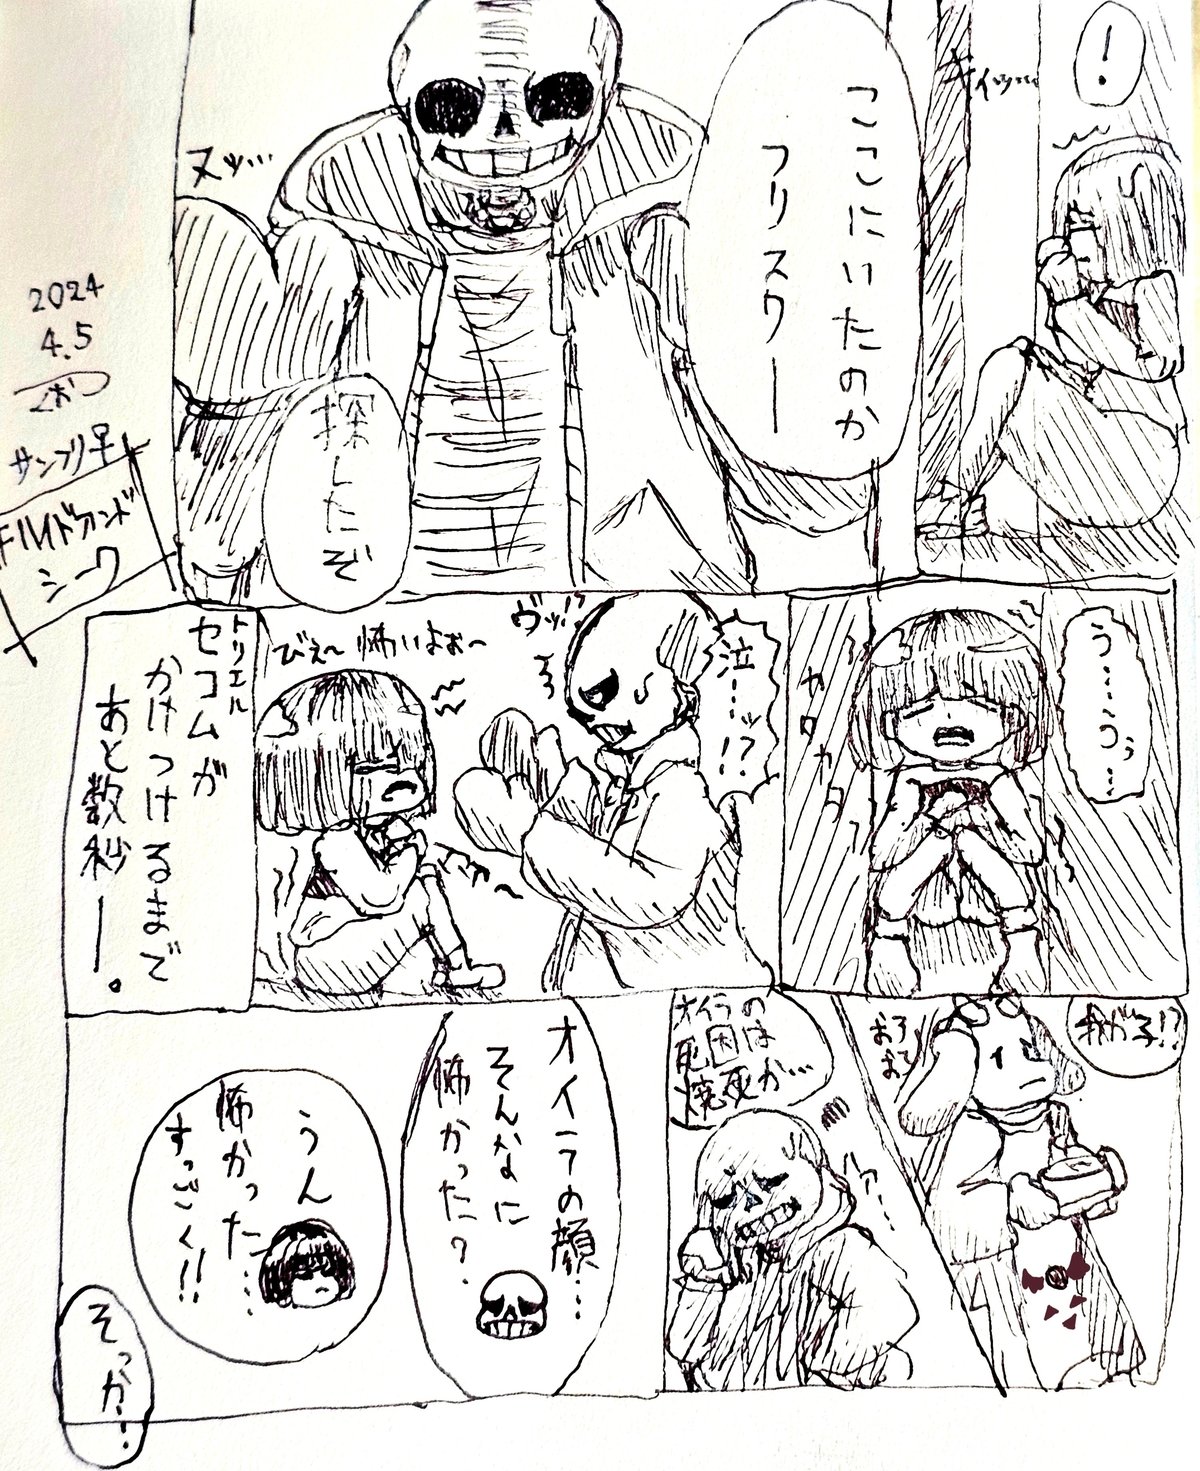 !
ギィッ…
ここにいたのか
フリスクー
ヌッ…
探したぞ
2024
4.5
サンフリ早
FIMドカンド
シーク
う……うぅ…
カタカタ
泣…ッ!?
ヴッ!?
びぇ〜怖いよぉ〜
トリエル
セコムが
かけつけるまで
あと数秒ー。
我が子!?
おろ
おろ
オイラの
死因は
焼死か…
オイラの顔…
そんなに
怖かった?
うん
怖かった…
すっごく!!
そっか…